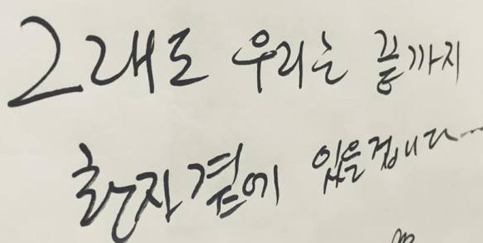 그래도 우리는 끝까지
환자 곁에 있을겁니다...